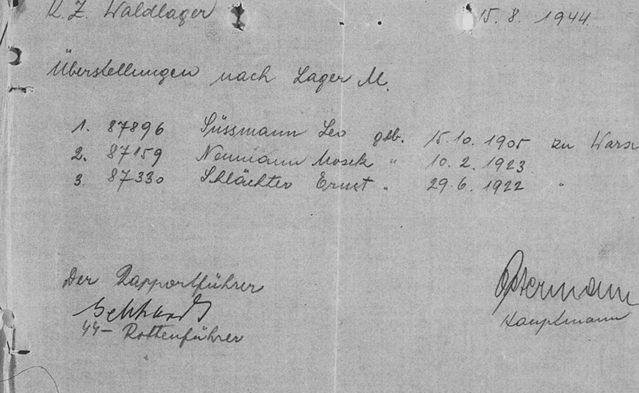 K. Z. Waldlager 15. 8. 1944.
Überstellungen nach Lager M.
1. 87896 Süssmann Leo geb. 15.10. 1905 zu Warsc
2. 87159 Neumann Mosek " 10. 2. 1923.
3. 87330 Schlächter Ernst " 29. 6. 1922 "
Der Rapportführer
Gebhardt
44- Rottenführer
Ostermann
Hauptmann